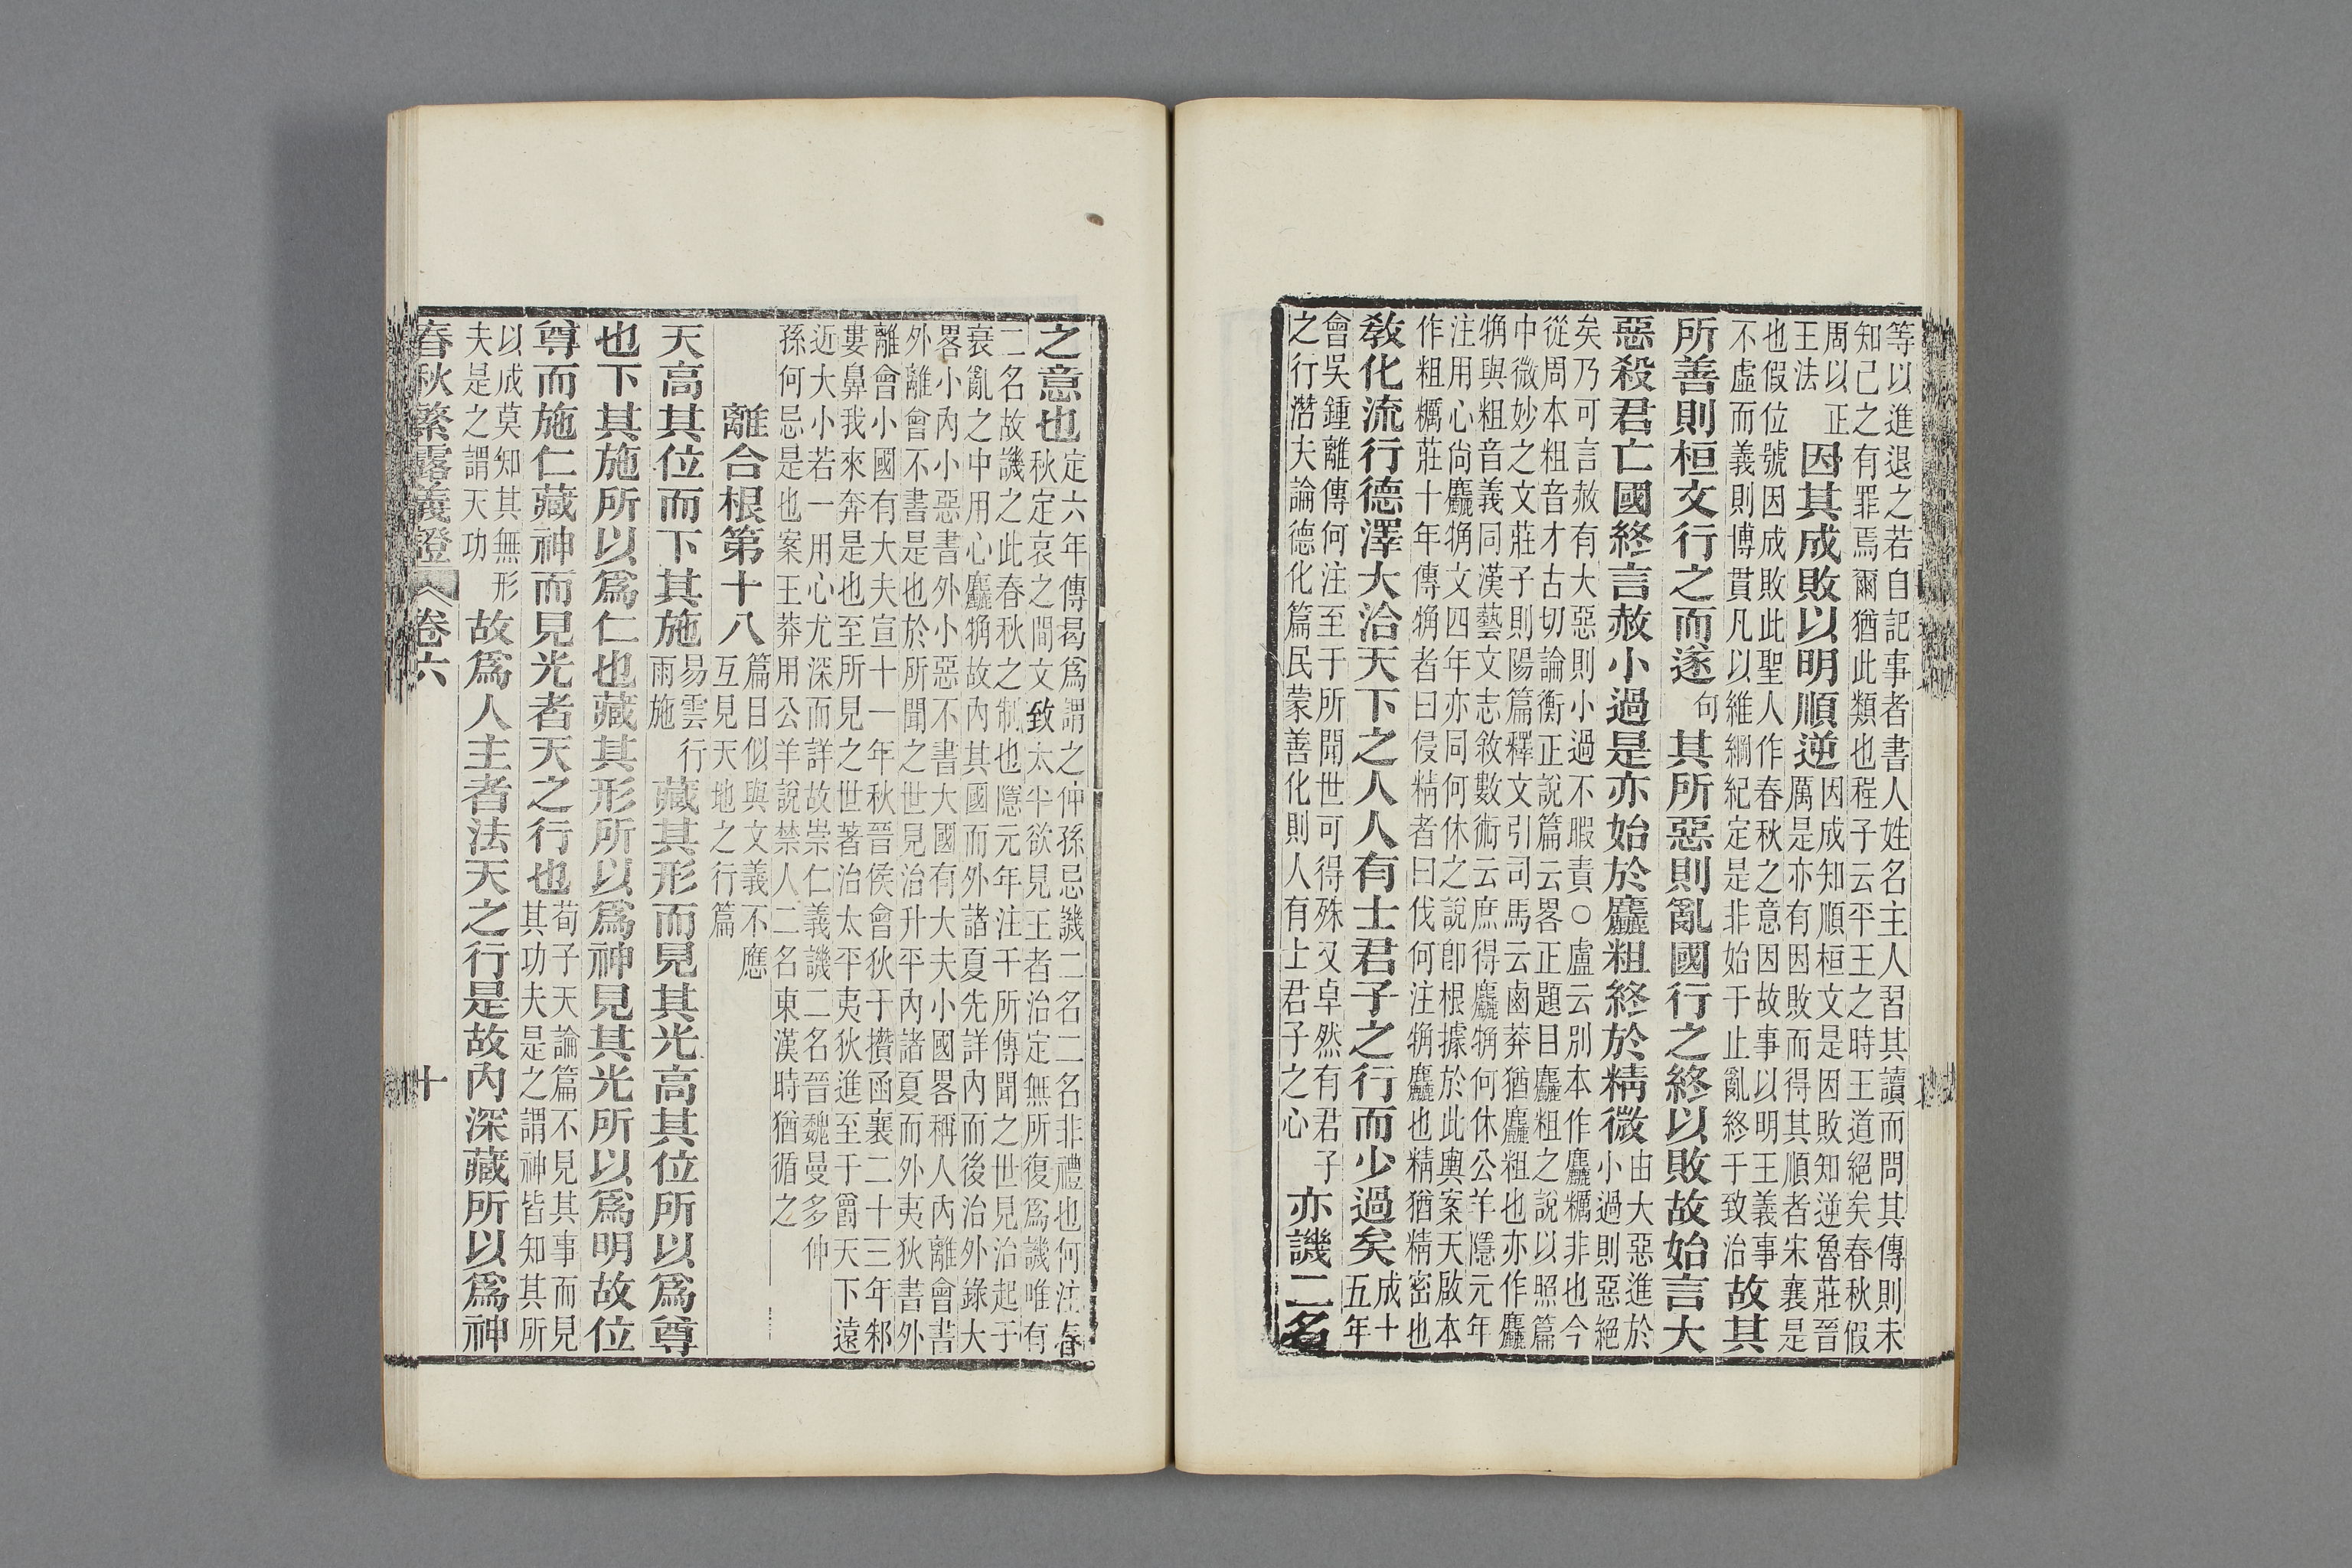 等以進退之若自記事者書人姓名主人習其讀而問其傳則未
知己之有罪焉爾猶此類也程子云平王之時王道絕矣春秋假
周以正
王法
因其成敗以明順逆
因成知順桓文是因敗知逆魯莊晉
厲是亦有因敗而得其順者宋襄是
也假位號因成敗此聖人作春秋之意因故事以明王義事
不虛而義則博貫凡以維綱紀定是非始于止亂終于致治
故其
所善則桓文行之而遂句其所惡則亂國行之終以敗故始言大
惡殺君亡國終言赦小過是亦始於麤粗終於精微
由大惡進於
小過則惡絕
矣乃可言赦有大惡則小過不暇責○盧云別本作麤糲非也今
從周本粗音才古切論衡正說篇云畧正題目麤粗之說以照篇
中微妙之文莊子則陽篇釋文引司馬云鹵莽猶麤粗也亦作麤
觕與粗音義同漢藝文志敘數術云庶得麤觕何休公羊隱元年
注用心尙麤觕文四年亦同何休之說卽根據於此輿案天啟本
作粗糲莊十年傳觕者曰侵精者曰伐何注觕麤也精猶精密也
敎化流行德澤大洽天下之人人有士君子之行而少過矣
成十
五年
會吳鍾離傳何注至于所聞世可得殊又卓然有君子
之行潛夫論德化篇民蒙善化則人有士君子之心
亦譏二名
之意也
定六年傳曷爲謂之仲孫忌譏二名二名非禮也何注春
秋定哀之間文致太平欲見王者治定無所復爲譏唯有
二名故譏之此春秋之制也隱元年注于所傳聞之世見治起于
衰亂之中用心麤觕故內其國而外諸夏先詳內而後治外錄大
畧小內小惡書外小惡不書大國有大夫小國畧稱人內離會書
外離會不書是也於所聞之世見治升平內諸夏而外夷狄書外
離會小國有大夫宣十一年秋晉侯會狄于攢函襄二十三年邾
婁鼻我來奔是也至所見之世著治太平夷狄進至于爵天下遠
近大小若一用心尤深而詳故崇仁義譏二名晉魏曼多仲
孫何忌是也案王莽用公羊說禁人二名東漢時猶循之
離合根第十八
篇目似與文義不應
互見天地之行篇
天高其位而下其施
易雲行
雨施
藏其形而見其光高其位所以爲尊
也下其施所以爲仁也藏其形所以爲神見其光所以爲明故位
尊而施仁藏神而見光者天之行也
荀子天論篇不見其事而見
其功夫是之謂神皆知其所
以成莫知其無形
夫是之謂天功
故爲人主者法天之行是故內深藏所以爲神
春秋繁露義證 卷六 十